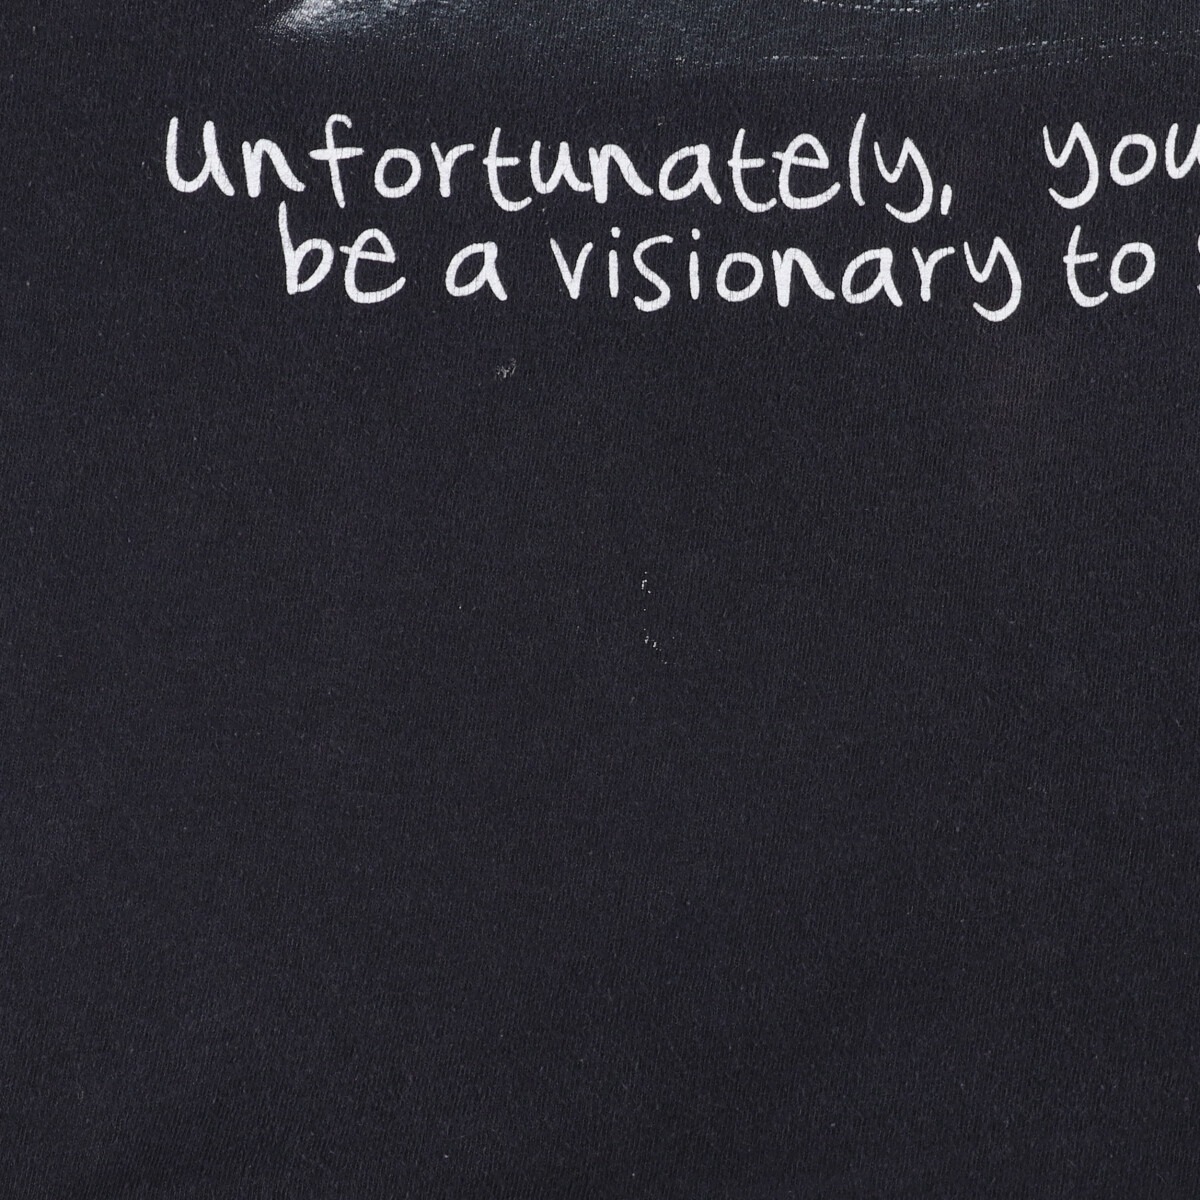 Unfortunately, you
be a visionary to